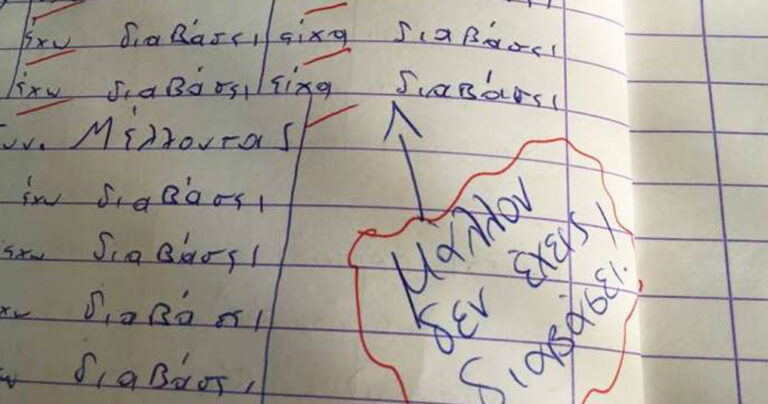 έχω διαβάσει είχα διαβάσει
έχω διαβάσει είχα διαβάσει
συν. Μέλλοντας
έχω διαβάσει
έχω διαβάσει
έχω διαβάσει
διαβάσει
Μάλλον
δεν έχεις
διαβάσει.